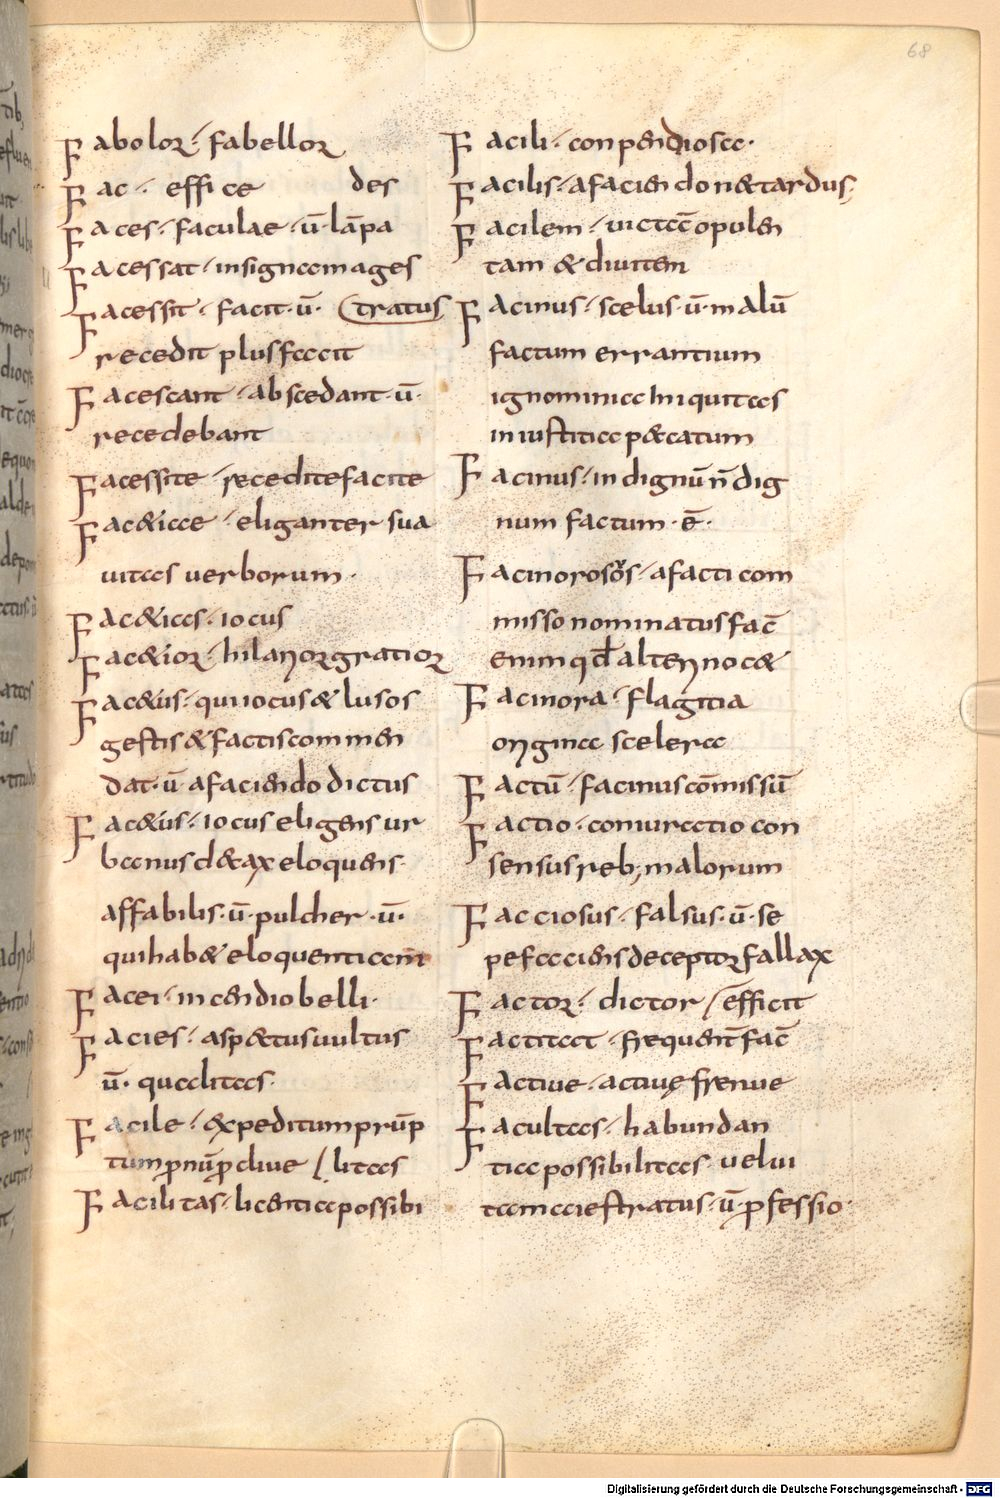 68
Fabolor · fabellor
Fac · effice des
Faces · faculae · ū lāpa
Facessat · insigneemages
Facessit · facit · ū · tratus
recedit plusfecit
Facescant · abscedant · ū ·
recedebant
Facessite · recedite facite
Fac&iae · eliganter sua
uitas uerborum ·
Fac&ias · iocus
Fac&ior · hilarior gratior
Fac&us · qui iocus & lusos
gestis & factis commen
dat · ū a faciendo dictus
Fac&us · iocus eligens ur
banus d&ax eloquens
affabilis · ū · pulcher · ū ·
qui hab& eloquentiam
Facei · incendio belli ·
Facies · asp&tus uultus
ū · qualitas
Facile · expeditum prūp
tum pronū procliue / litas
Facilitas · licentia possibi
Facili · conpendiosa ·
Facilis · a faciendo n& tardus
Facilem · uictā opulen
tam & diuitem
Facinus · scelus · ū · malū
factum errantium
ignominia iniquitas
iniustitia p&catum
Facinus · indignū n̄ dig
num factum · ē ·
Facinorosos · a facti com
misso nominatus fac̄
enim qđ alteri noc&
Facinora · flagitia
origine scelera
Factū · facinus cōmissū
Factio · coniuratio con
sensus reb; malorum
Facciosus · falsus · ū · se
pe faciens deceptor fallax
Factor · dictor / efficit
Factitat · frequent̄ fac̄
Factiue · actiuę frenue
Facultas · habundan
tia possibilitas uelui
tam aiestratus · ū · professio ·
Digitalisierung gefördert durch die Deutsche Forschungsgemeinschaft - DFG